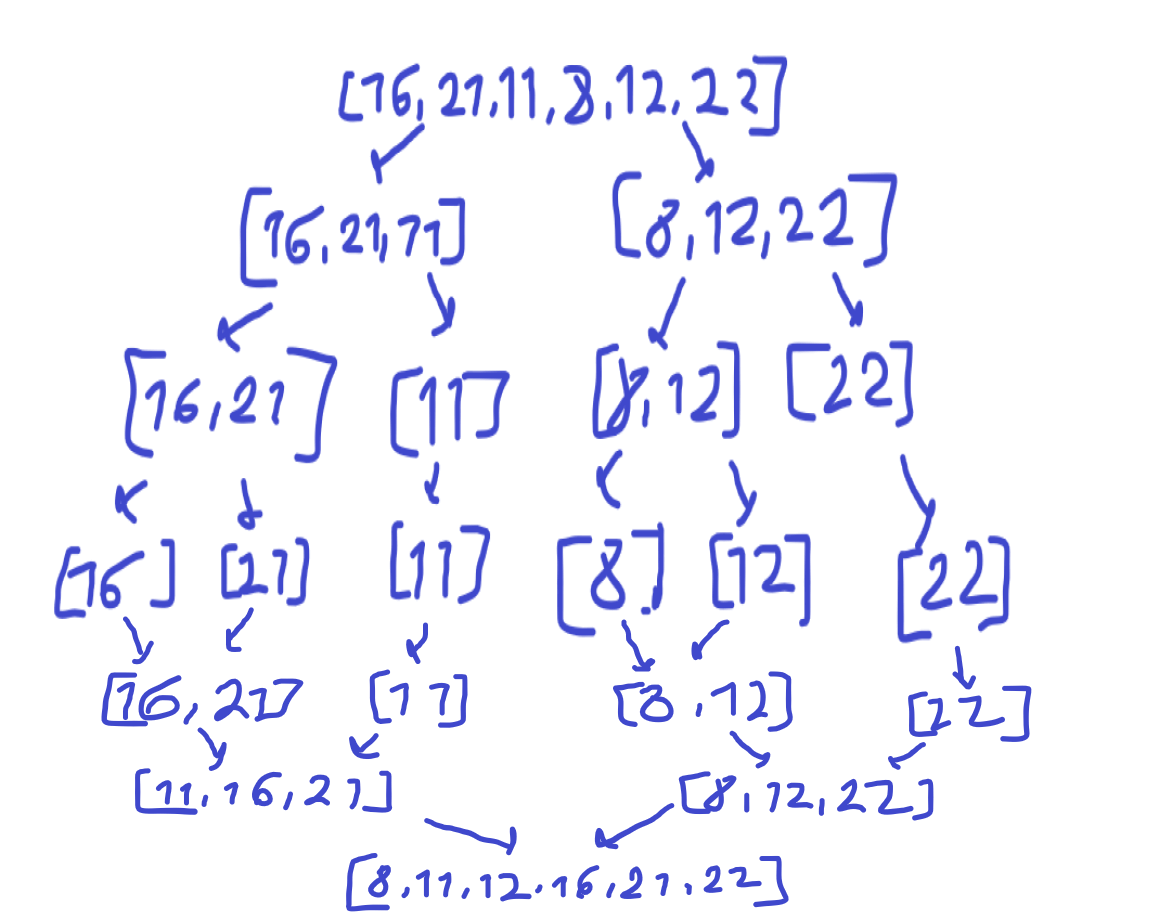 [16, 21, 11, 8, 12, 22]
[16, 21, 11] [8, 12, 22]
[16, 21] [11] [8, 12] [22]
[16] [21] [11] [8] [12] [22]
[16, 21] [11] [8, 12] [22]
[11, 16, 21] [8, 12, 22]
[8, 11, 12, 16, 21, 22]